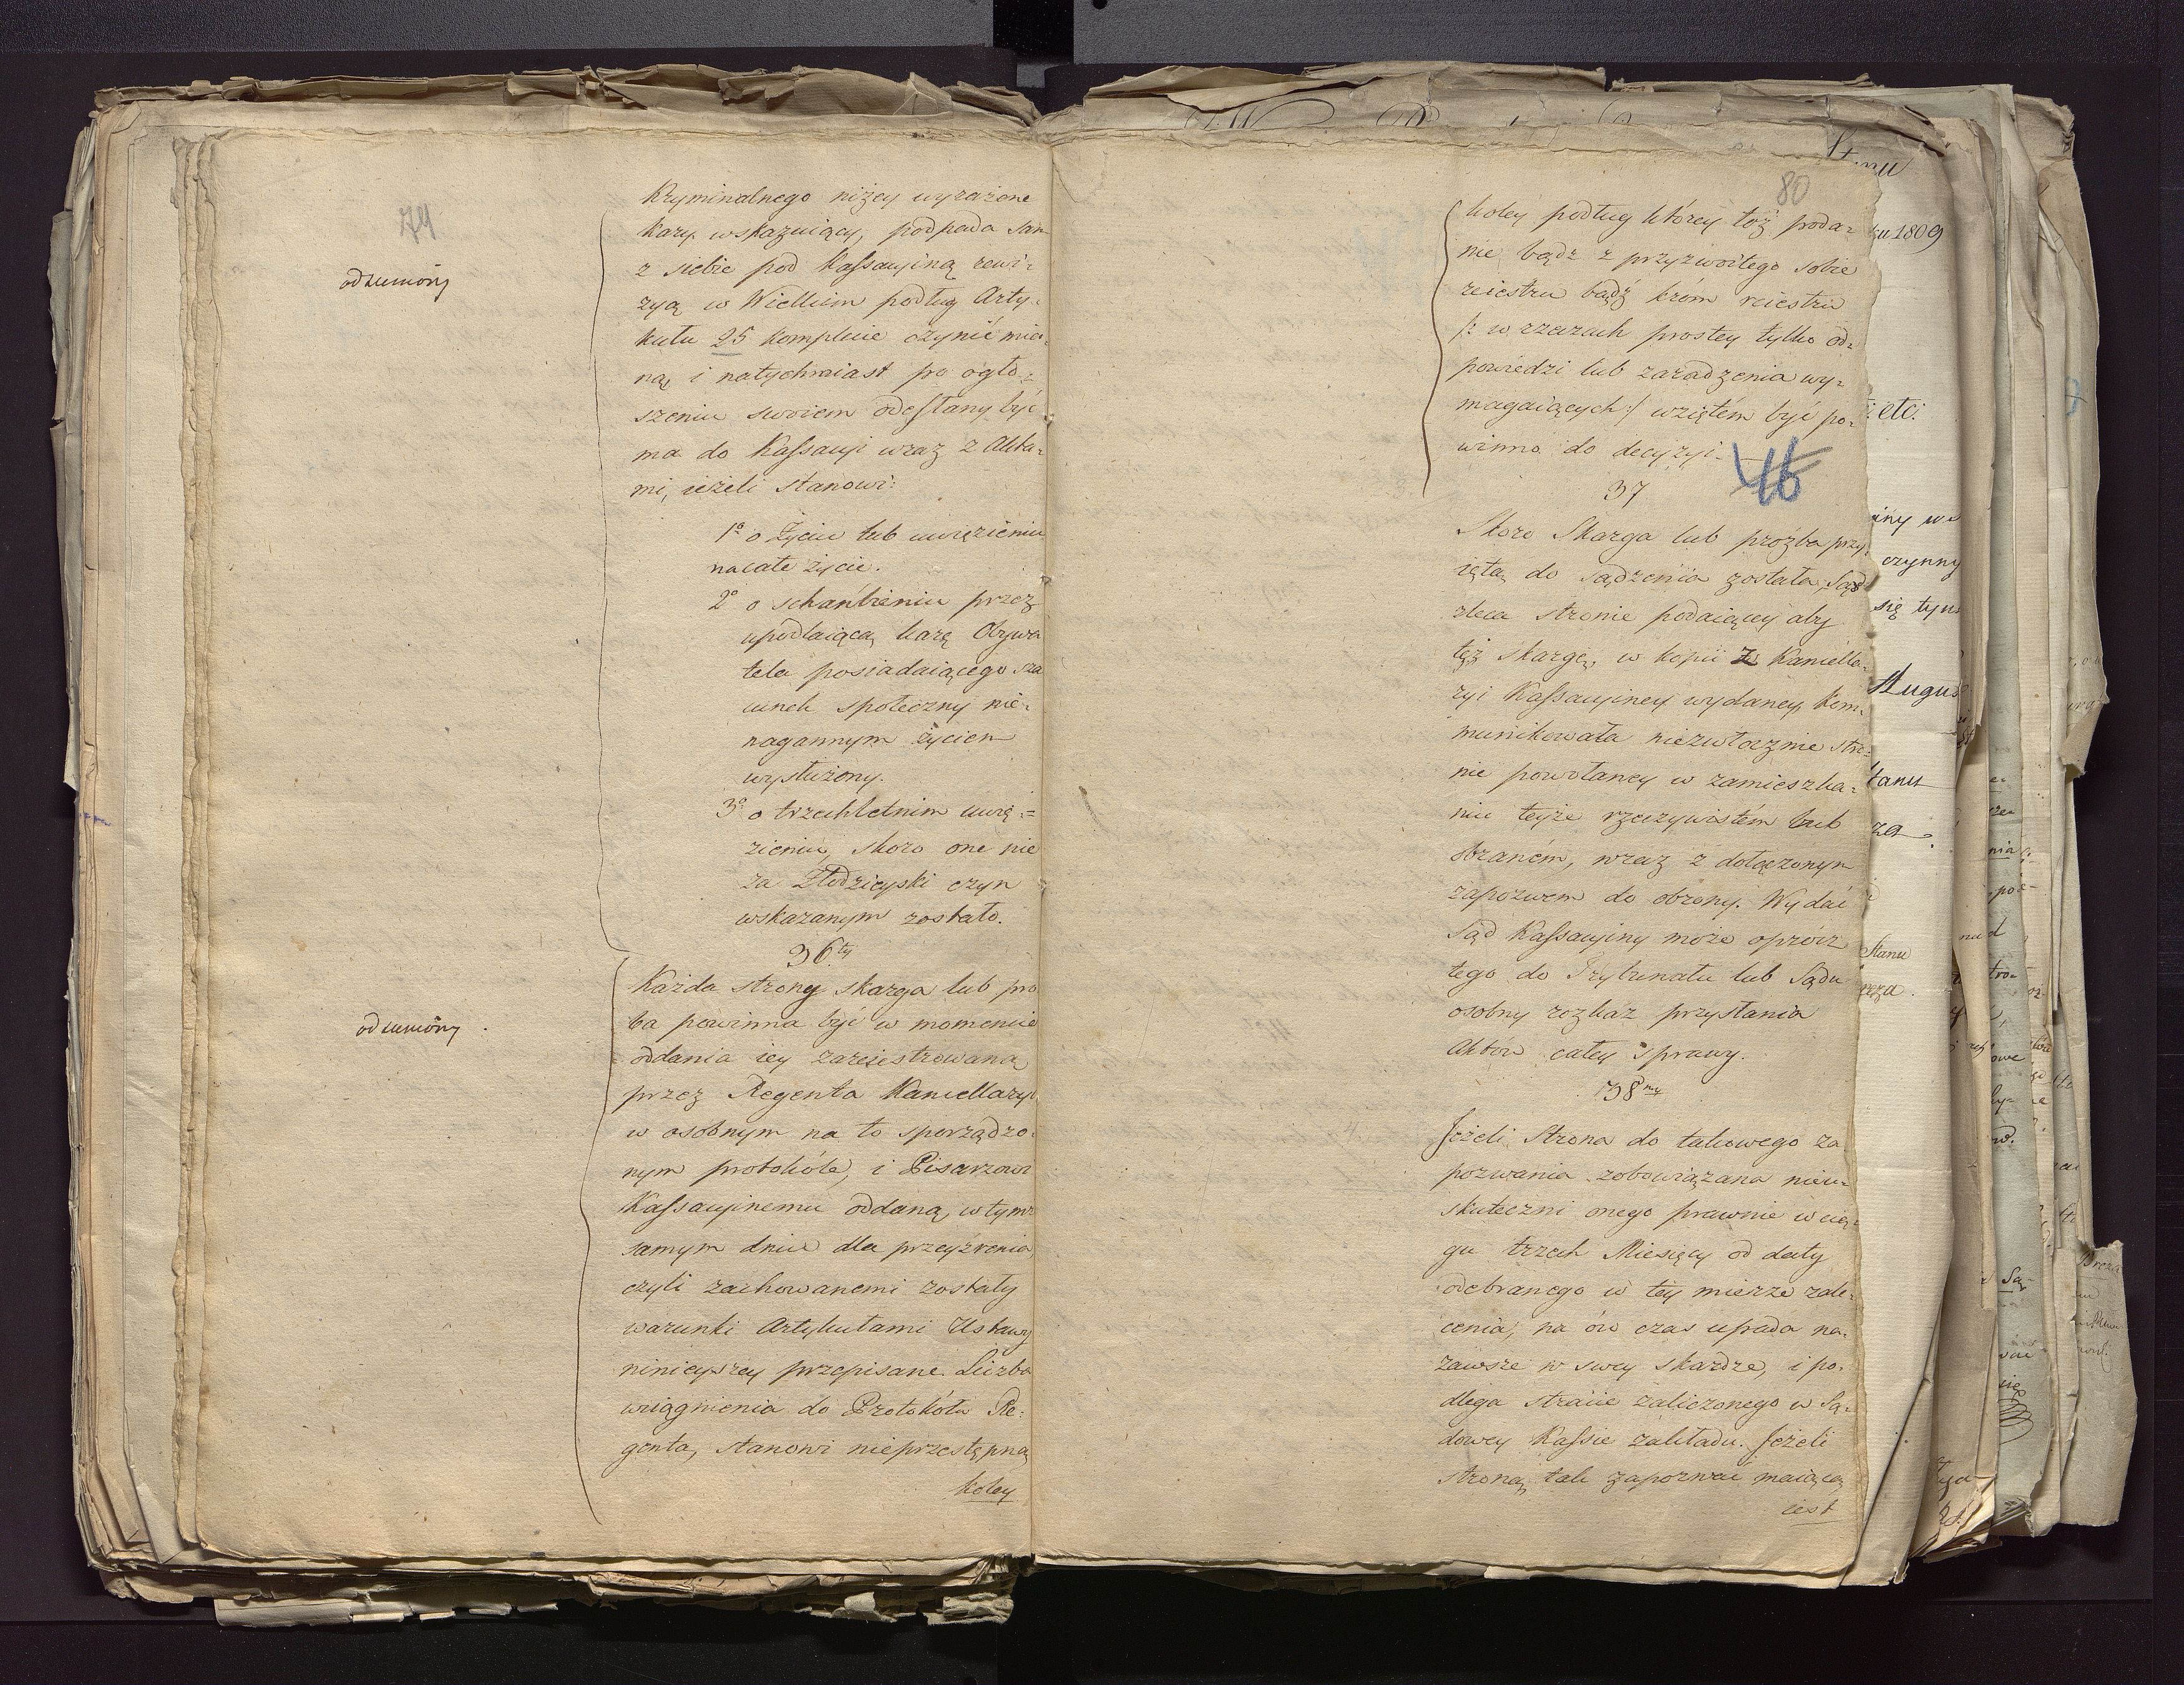 79
odsunióny
Kryminalnego niżey wyrażone
kary wskazuiący, podpada sam
z siebie pod Kassacyiną rewi-
zyą w Wielkim podług Arty-
kułu 25 komplecie czynić mia-
ną i natychmiast po ogło-
szeniu swoiem odesłany być
ma do Kassacyi wraz z Akta-
mi, ieżeli stanowi:
1º o życiu lub uwięzieniu
na całe życie.
2º o schańbieniu przez
upodlaiącą karę Obywa
tela posiadaiącego sza
cunek społeczny nie-
nagannym życiem
wysłużony.
3º o trzechletnim uwię=
zieniu, skoro one nie
za Złodzieyski czyn
wskazanym zostało.
36ty
odsunióny
Każda strony skarga lub pro
ba powinna być w momencie
oddania iey zareiestrowaną
przez Regenta Kancellaryi
w osobnym na to sporządzo-
nym protokóle, i Pisarzowi
Kassacyinemu oddaną, w tym
samym dniu dla przeyźrenia
czyli zachowanemi zostały
warunki Artykułami Ustawy
ninieyszey przepisane. Liczba
wciągnienia do Protokółu Re-
genta, stanowi nieprzestępną
koley
80
koley podług którey toż poda-
nie bądz z przyzwoitego sobie
reiestru bądź króm reiestru
/: w rzeczach prostey tylko od-
powiedzi lub zaradzenia wy-
magaiących :/ wziętém być po-
winno do decyzyi.
46
37
Skoro Skarga lub proźba przy-
iętą do sądzenia została, Sąd
zleca stronie podaiącey aby
tęż skargę, w kopii z Kancella-
ryi Kassacyiney wydaney, kom-
munikowała niezwłocznie stro-
nie powołaney w zamieszka-
niu teyże rzeczywistém lub
obraném, wraz z dołączonym
zapozwem do obrony. Wydać
Sąd Kassacyiny może oprócz
tego do Trybunału lub Sądu
osobny rozkaz przysłania
Aktów całey sprawy.
38my
Jeżeli Strona do takowego za
pozwania zobowiązana nieu-
skuteczni onego prawnie w cią-
gu trzech Miesięcy od daty
odebranego w tey mierze zale-
cenia, na ów czas upada na-
zawsze w swey skardze, i po-
dlega stracie zaliczonego w Są-
dowey Kassie zakładu. Jeżeli
stroną tak zapozwać maiącą
iest
Stanu
ku 1809
etc.
czynny
się tym
August
Stanu